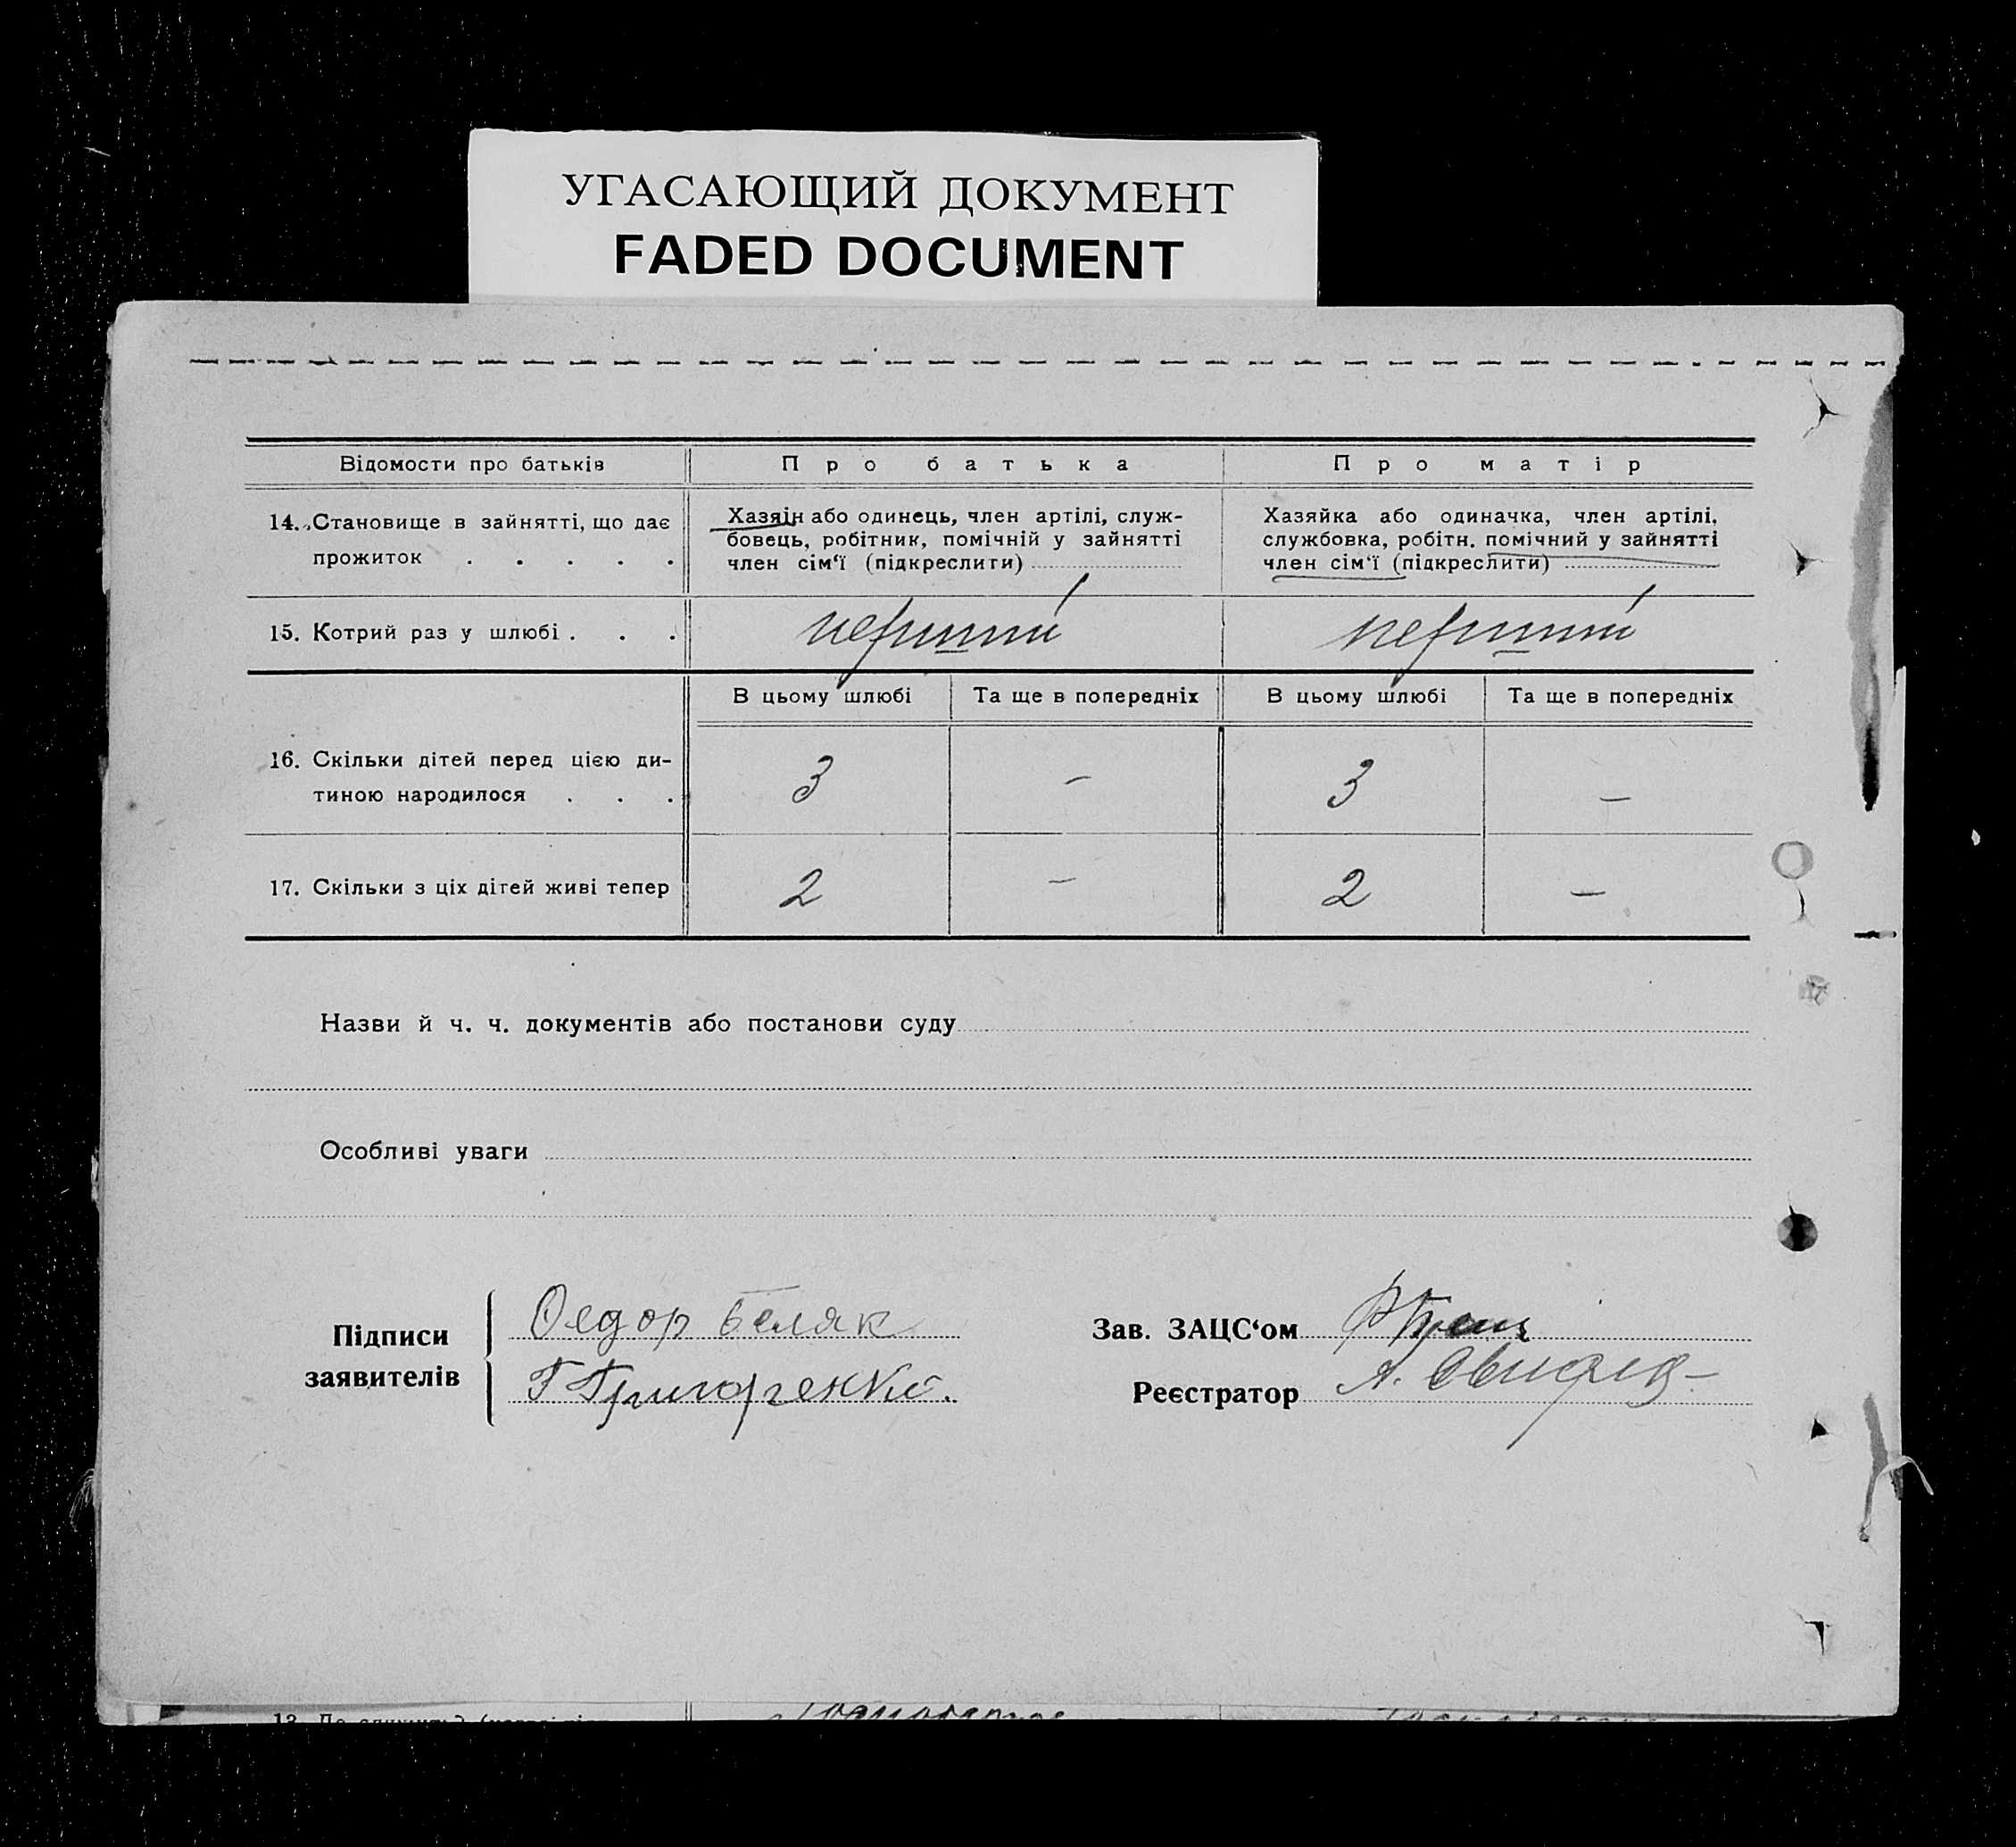 УГАСАЮЩИЙ ДОКУМЕНТ
FADED DOCUMENT
Відомости про батьків Про батька Про матір
14. Становище в зайнятті, що дає
прожиток . . . . .
Хазяін або одинець, член артілі, служ-
бовець, робітник, помічній у зайнятті
член сім'ї (підкреслити)
Хазяйка або одиначка, член артілі,
службовка, робітн. помічний у зайнятті
член сім'ї (підкреслити)
15. Котрий раз у шлюбі . . . перший перший
В цьому шлюбі Та ще в попередніх В цьому шлюбі Та ще в попередніх
16. Скільки дітей перед цією ди-
тиною народилося . . . 3 – 3 –
17. Скільки з ціх дітей живі тепер 2 – 2 –
Назви й ч. ч. документів або постанови суду
Особливі уваги
Підписи
заявителів
Федор Беляк
Г Григоренко.
Зав. ЗАЦС'ом
Реєстратор А.